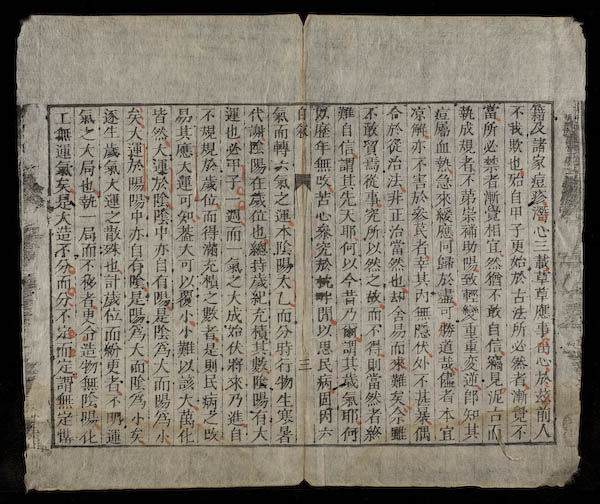 籍及諸家痘疹潛心三載草草應事留心於茲前人
不我欺也殆自甲子更始於古法所必然者漸覺不
當所必禁者漸覺相宜然猶不敢自信竊見泥古而
執成規者不第崇補助陽致輕變重重變逆即知其
痘屬血熱急來緩應同歸於盡可勝道哉儘者本宜
凉解亦不害於參民者幸其內無隱伏外不甚暴偶
合於從治法非正治當然也却舍易而來難矣余雖
不敢貿焉從事究所以然之故而不得則當然者終
難自信謂其先天耶何以今昔乃爾謂其歲氣耶何
以歷年無改苦心參究於 閒以思民病固因六
自敘
三
氣而轉六氣之運本陰陽太乙而分時行物生寒暑
代謝陰陽在歲位也總持歲紀充積其數陰陽有大
運也必甲子一週而一氣之大成始伏將來乃進自
不規規於歲位而得滿充積之數者是則民病之改
易其應大運可知葢大可以覆小小難以該大萬化
皆然大運於陰陰中亦自有陽是陰爲大而陽爲小
矣大運於陽陽中亦自有陰是陽爲大而陰爲小矣
逐生歲氣大運之散殊也計歲位而紛更者不明運
氣之大局也執一局而不移者更令造物無陰陽化
工無運氣矣是大造不分而分不定而定謂無定惜